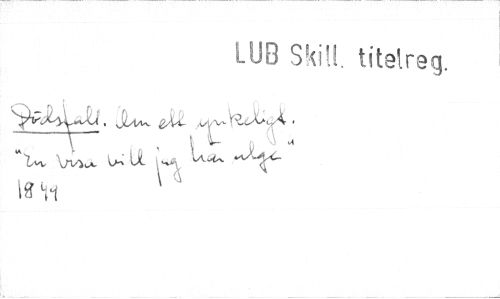 LUB Skill. titelreg.
Dödsfall. Om ett ynkeligt.
"En visa vill jag här
1849